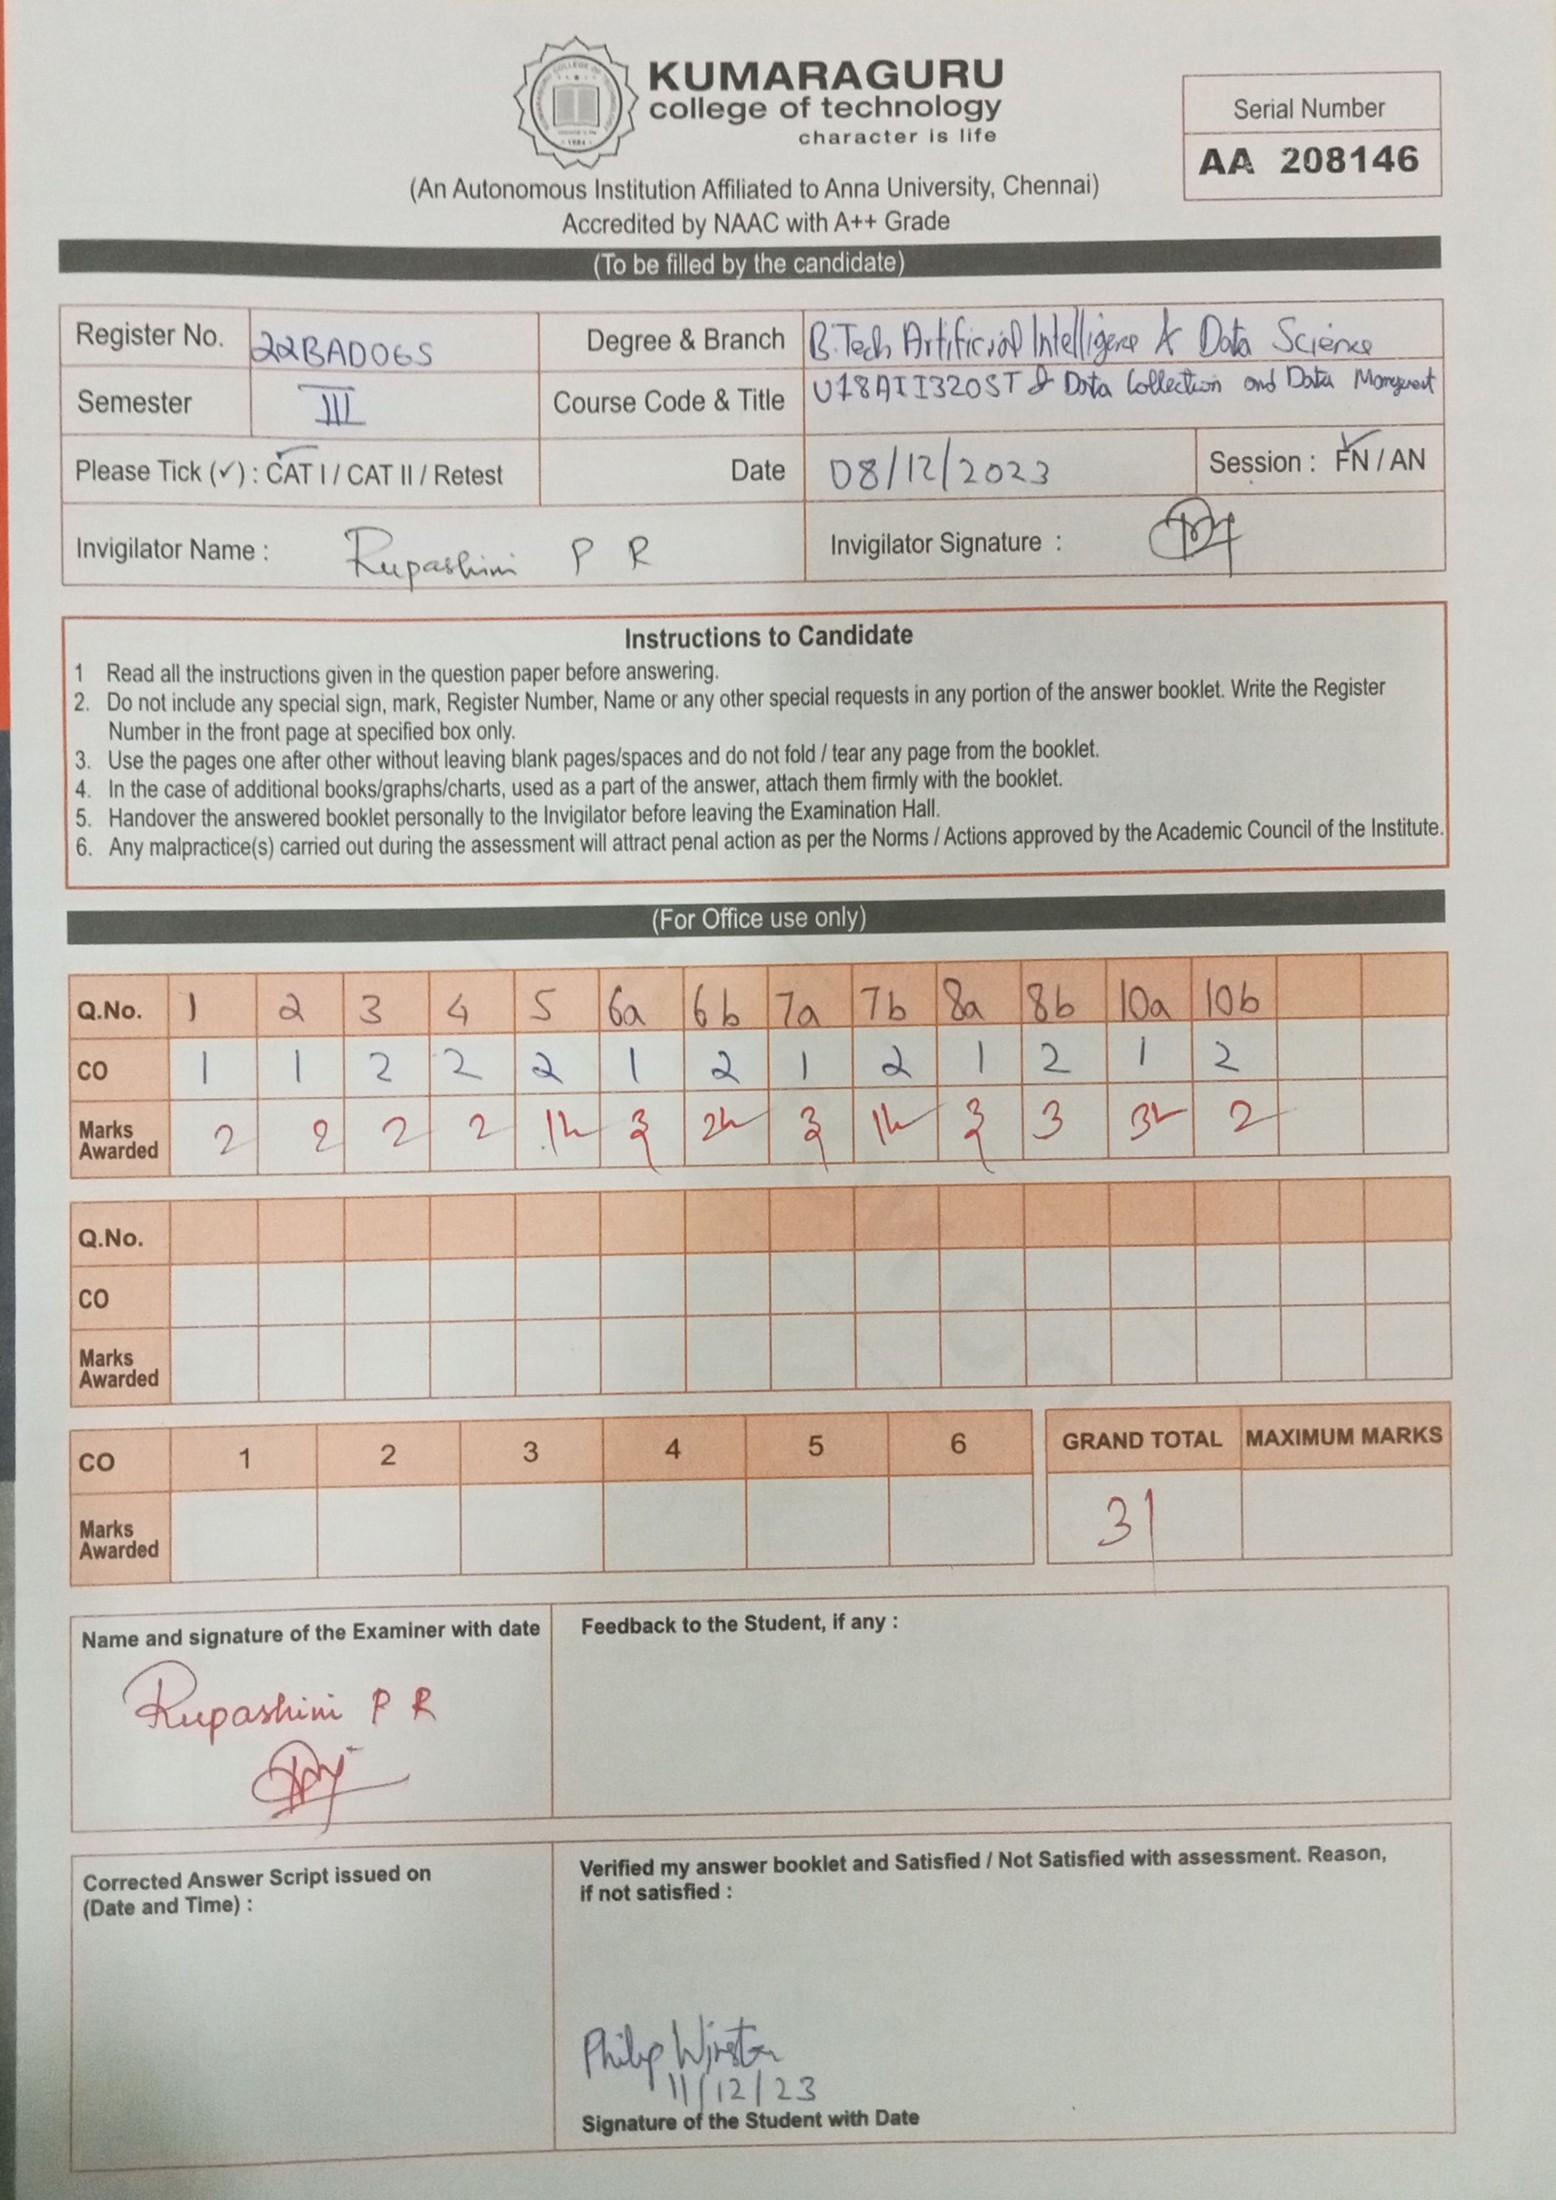 KUMARAGURU
college of technology
character is life
Serial Number
AA 208146
(An Autonomous Institution Affiliated to Anna University, Chennai)
Accredited by NAAC with A++ Grade
(To be filled by the candidate)
Register No. 22BAD065 Degree & Branch B.Tech Artificial Intelligence & Data Science
Semester III Course Code & Title U18AII3205T & Data Collection and Data
Please Tick (✓) : CAT I / CAT II / Retest Date 08/12/2023 Session : FN / AN
Invigilator Name : Rupashini P R Invigilator Signature :
Instructions to Candidate
1 Read all the instructions given in the question paper before answering.
2. Do not include any special sign, mark, Register Number, Name or any other special requests in any portion of the answer booklet. Write the Register
Number in the front page at specified box only.
3. Use the pages one after other without leaving blank pages/spaces and do not fold / tear any page from the booklet.
4. In the case of additional books/graphs/charts, used as a part of the answer, attach them firmly with the booklet.
5. Handover the answered booklet personally to the Invigilator before leaving the Examination Hall.
6. Any malpractice(s) carried out during the assessment will attract penal action as per the Norms / Actions approved by the Academic Council of the Institute.
(For Office use only)
Q.No. 1 2 3 4 5 6a 6b 7a 7b 8a 8b 10a 10b
CO 1 1 2 2 2 1 2 1 2 1 2 1 2
Marks
Awarded 2 2 2 2 3 3 3 3 2
Q.No.
CO
Marks
Awarded
CO 1 2 3 4 5 6 GRAND TOTAL MAXIMUM MARKS
Marks
Awarded 31
Name and signature of the Examiner with date
Rupashini P R
Feedback to the Student, if any :
Corrected Answer Script issued on
(Date and Time) :
Verified my answer booklet and Satisfied / Not Satisfied with assessment. Reason,
if not satisfied :
Philip Winston
11/12/23
Signature of the Student with Date